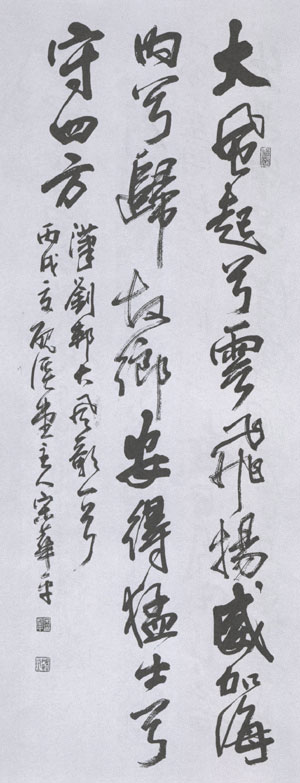 大風起兮雲飛揚威加海
内兮歸故鄉安得猛士兮
守四方
漢劉邦大風歌一首
丙戌主人宋華平